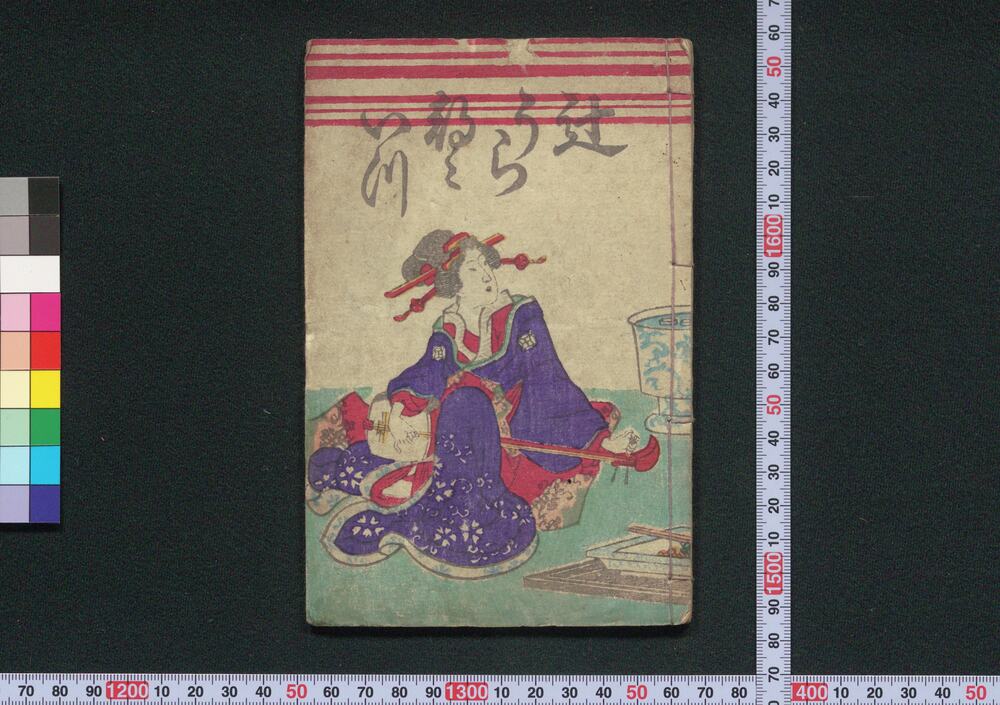 辻
うら
都々
いつ
60 50 40 30 20 10 1600 90 80 70 60 50 40 30 20 10 1500 90 80 70
70 80 90 1200 10 20 30 40 50 60 70 80 90 1300 10 20 30 40 50 60 70 80 400 10 20 30 40 50